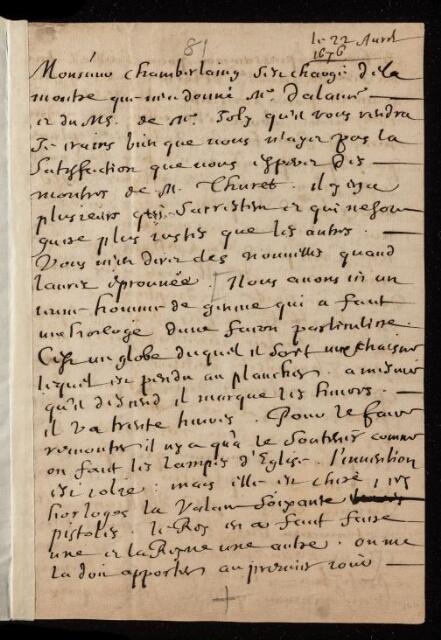 81
le 22 Avril
1676
Monsieur chamberlaing s'est chargé de la
montre que m'a donné Mr. Dalancé
et du MS. de Mr. Joly qu'il vous rendra
Je crains bien que vous n'ayez pas la
satisfaction que vous esperez des
montres de M. Thuret. il y en a
plusieurs qui s'arrestent et qui ne sont
guere plus justes que les autres.
Vous m'en direz des nouvelles quand
laurez éprouvée. Nous avons ici un
jeune homme de genie qui a fait
une horloge d'une facon particuliere.
C'est un globe duquel il sort une chaisne
lequel est pendu au plancher. a mesure
qu'il descend il marque les heures.
il va trente heures. Pour le faire
remonter il n'y a qu'a le soutenir comme
on fait les lampes d'Eglise. l'invention
est jolie: mais elle est chere, ces
horloges la valant soixante
pistoles. le Roy en a fait faire
une et la Reyne une autre. on me
la doit apporter au premier jour